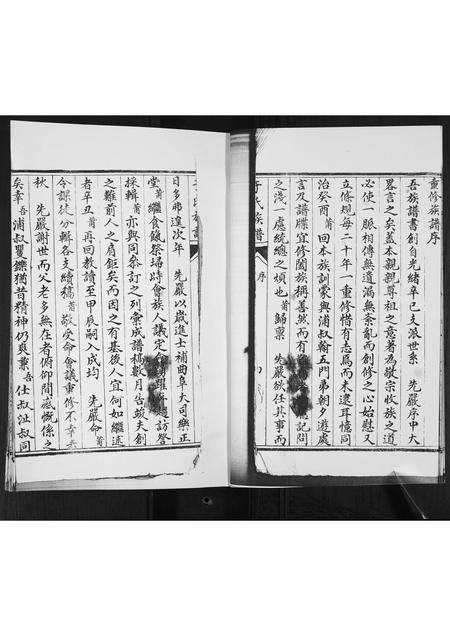 重修族譜序
吾族譜書創自光緒辛巳支浪世系　先嚴序中大
畧言之矣蓋本親親尊祖之意著為敬宗收族之道
必使一脈相傳無遺漏無紊亂而創修之心始慰又
立條規每二十年一重修惜有志焉而未逮耳憶同
治癸酉　莆回本族訓蒙與浦叔翰五門弟朝夕遊處
言及譜牒宜修闔族稱善然而有　記問
之淺一處統總之煩也　莆歸稟　先嚴欲任其事而
于氏族譜
序
日多弗遑次年　先嚴以歲進士補曲阜大司樂正
堂　莆繼食餼祭埽時會族人議定　躍　訪詧
採輯　莆亦與同參訂之列彙成譜稿數月告竣夫創
之難前人之肩鉅矣而因之有基後人宜何如繼述
者辛丑　莆再回教讀至甲辰嗣入成均　先嚴命　莆
令課徒分輯各支續稿　莆敬受命會議重修不幸去
秋　先嚴謝世而父老多無在者俯仰間感慨係之
矣幸　吾浦叔矍鑠猶昔精神仍爽兼　吾仕叔沚叔同